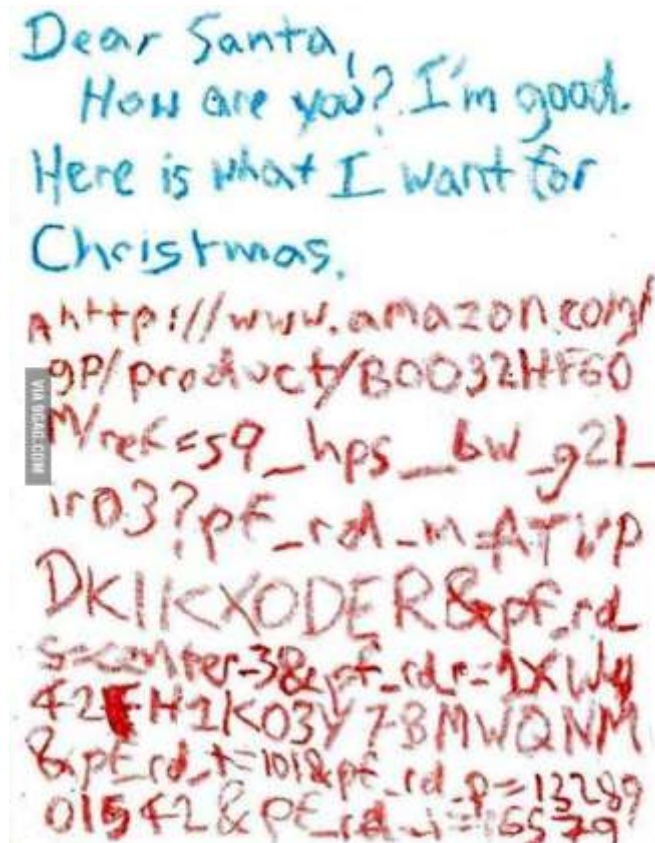 Dear Santa,
How are you? I'm good.
Here is what I want for
Christmas.
Ahttp://www.amazon.com/
gp/product/B0032HF60
M/ref=s9_hps_bw_g21_
ir03?pf_rd_m=ATVP
DKIKX0DER&pf_rd_
s=center-3&pf_rd_r=1XWY
42FH1K03Y7BMWQNM
&pf_rd_t=101&pf_rd_p=13289
01542&pf_rd_i=16579
VIA 9GAG.COM